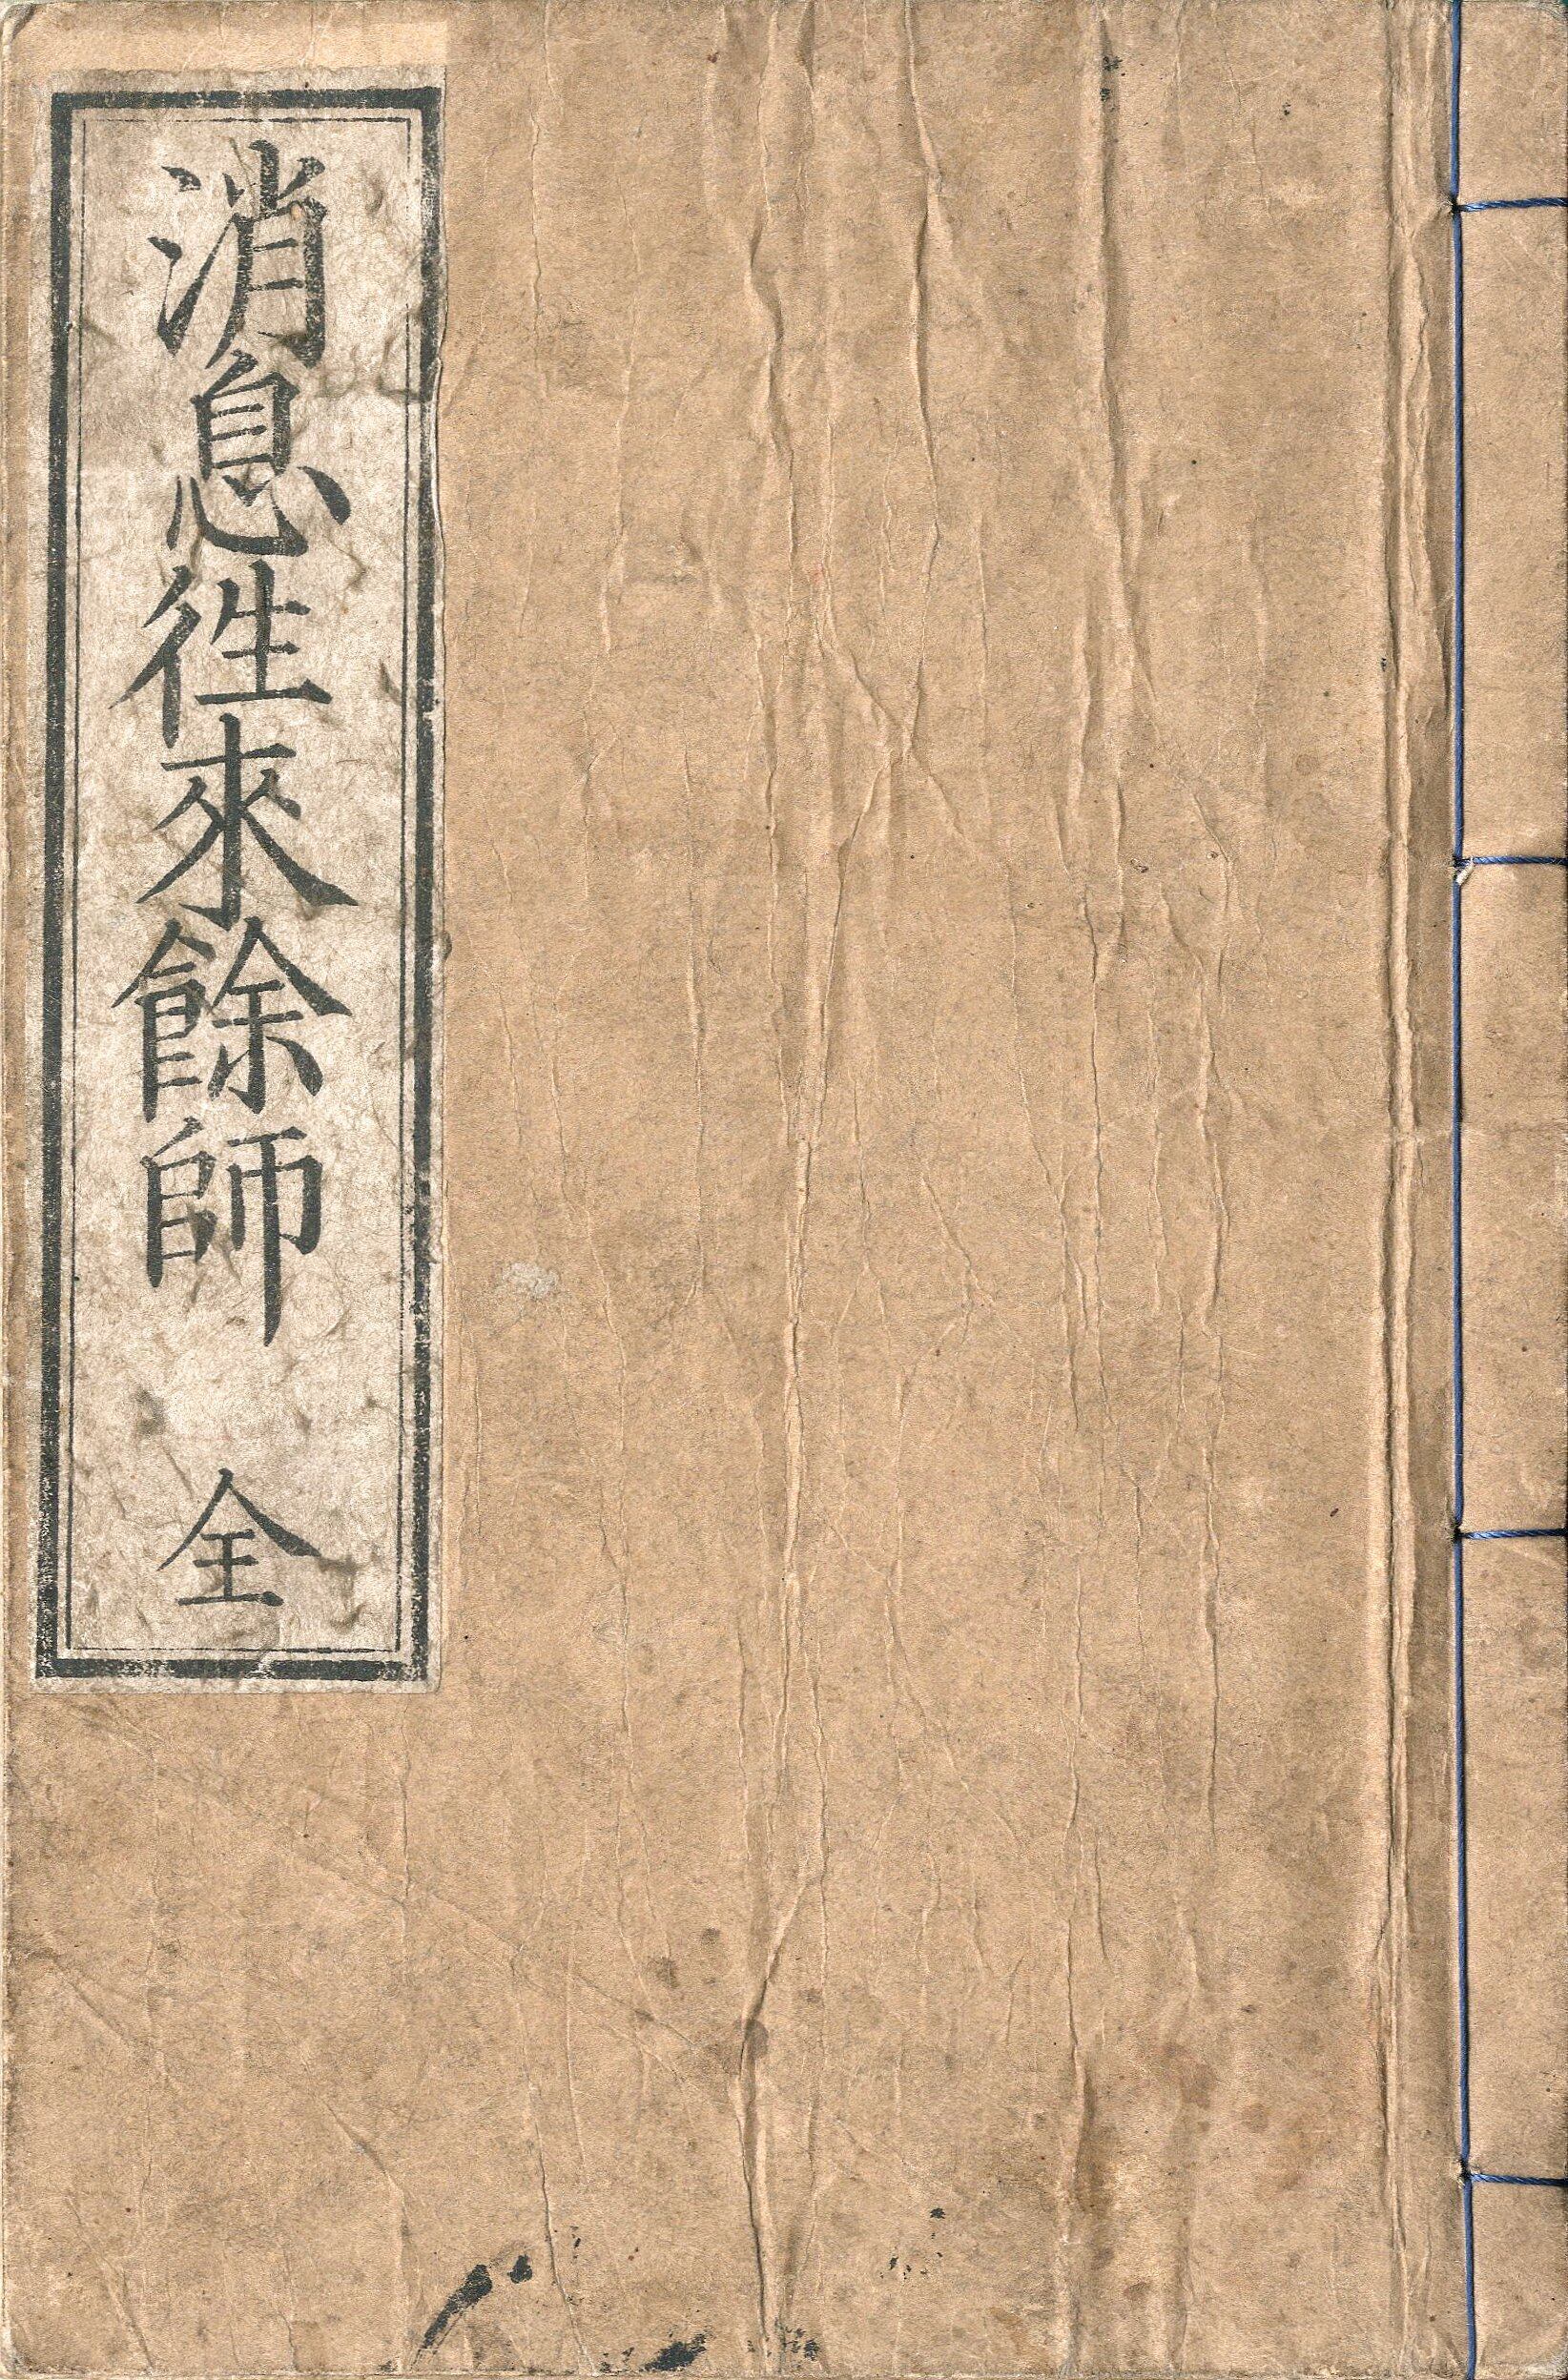 消息徃來餘師 全